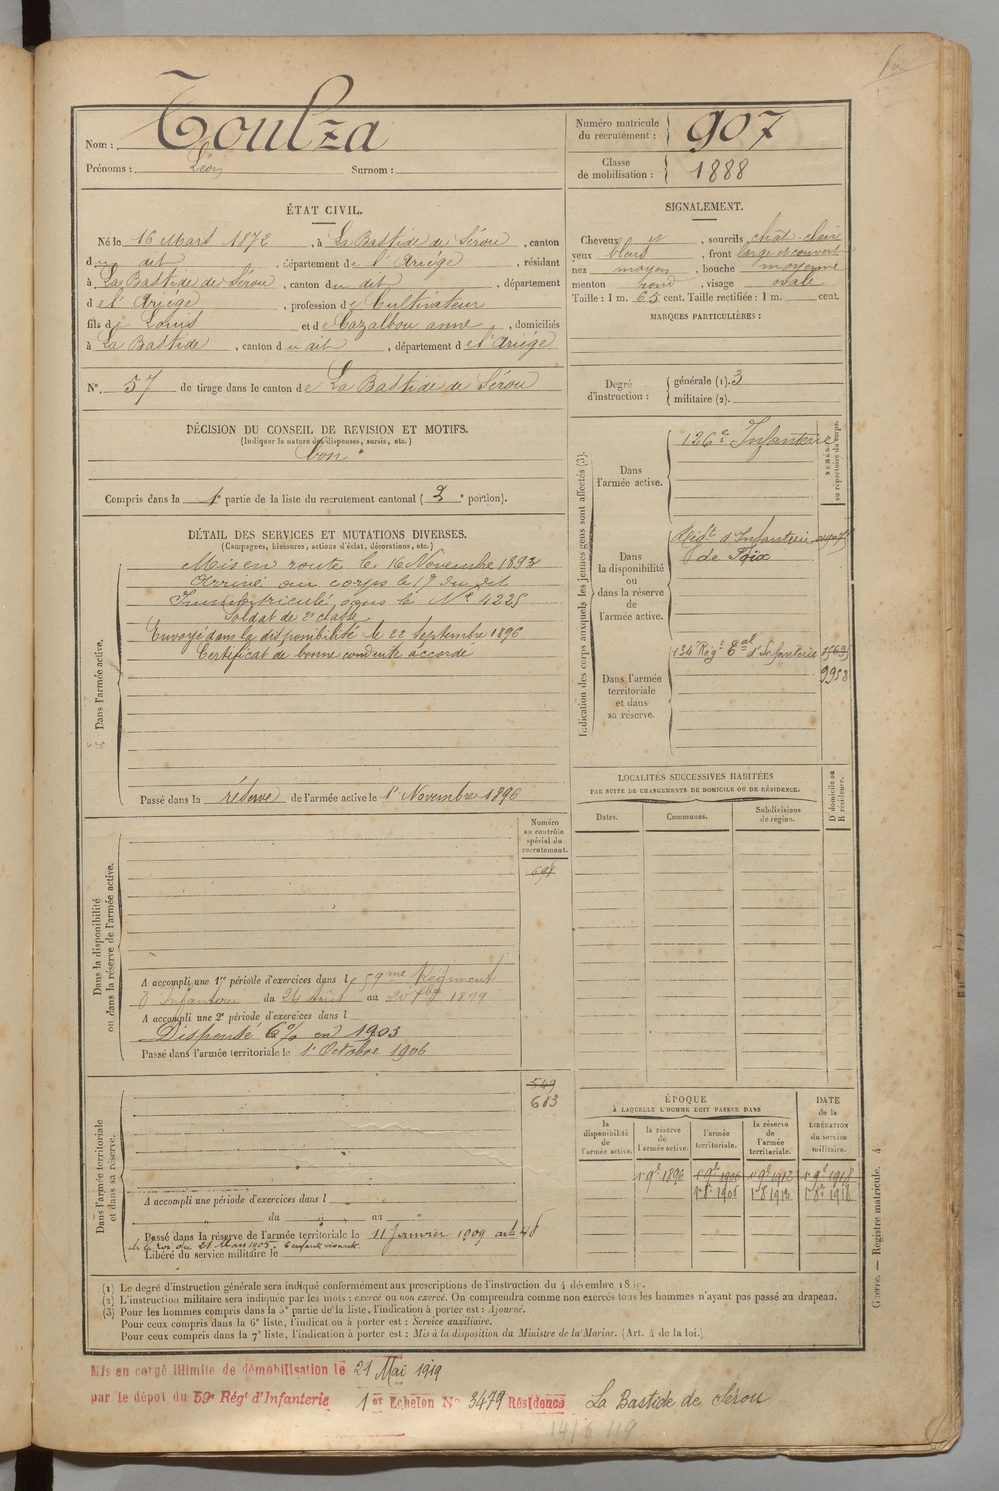 Nom : Toulza
Prénoms : Léon Surnom :
Numéro matricule du recrutement : 907
Classe de mobilisation : 1888
ÉTAT CIVIL.
Né le 16 Mars 1872, à La Bastide de Sérou, canton
du dit, département de l'Ariège, résidant
à La Bastide de Sérou, canton du dit, département
de l'Ariège, profession de Cultivateur
fils de Louis et de Cazalbou anne, domiciliés
à La Bastide, canton du dit, département de l'Ariège
N° 57 de tirage dans le canton de La Bastide de Sérou
SIGNALEMENT.
Cheveux et, sourcils chât-clair
yeux bleus, front large et couvert
nez moyen, bouche moyenne
menton rond, visage ovale
Taille : 1 m. 65 cent. Taille rectifiée : 1 m. cent.
MARQUES PARTICULIÈRES :
Degré d'instruction : générale (1). 3
militaire (2).
DÉCISION DU CONSEIL DE REVISION ET MOTIFS.
(Indiquer la nature des dispenses, sursis, etc.)
bon
Compris dans la 1e partie de la liste du recrutement cantonal (2e portion).
DÉTAIL DES SERVICES ET MUTATIONS DIVERSES.
(Campagnes, blessures, actions d'éclat, décorations, etc.)
Dans l'armée active.
Mis en route le 16 Novembre 1893
Arrivé au corps le 17 du dit
Immatriculé sous le N° 4225
Soldat de 2e classe
Envoyé dans la disponibilité le 22 Septembre 1896
Certificat de bonne conduite accordé
Passé dans la réserve de l'armée active le 1r Novembre 1896
Indication des corps auxquels les jeunes gens sont affectés (3).
NUMÉRO au répertoire du corps.
Dans l'armée active.
126e Infanterie
Dans la disponibilité ou dans la réserve de l'armée active.
Régt d'Infanterie
de Foix
Dans l'armée territoriale et dans sa réserve.
134 Régt Eal d'Infanterie
9958
LOCALITÉS SUCCESSIVES HABITÉES
PAR SUITE DE CHANGEMENTS DE DOMICILE OU DE RÉSIDENCE.
Dates. Communes. Subdivisions de région. D domicile ou R résidence.
Dans la disponibilité ou dans la réserve de l'armée active.
Numéro au contrôle spécial du recrutement.
698
A accompli une 1re période d'exercices dans le 59me Régiment
d'Infanterie du 24 Août au 20 7bre 1899
A accompli une 2e période d'exercices dans l
Dispensé 6% en 1903
Passé dans l'armée territoriale le 1r Octobre 1906
Dans l'armée territoriale et dans sa réserve.
549
683
A accompli une période d'exercices dans l
du " au "
Passé dans la réserve de l'armée territoriale le 11 Janvier 1909 arte 48
de la loi du 21 Mars 1905. 6 enfants vivants.
Libéré du service militaire le
ÉPOQUE
À LAQUELLE L'HOMME DOIT PASSER DANS
la disponibilité de l'armée active. la réserve de l'armée active. l'armée territoriale. la réserve de l'armée territoriale.
DATE de la LIBÉRATION du service militaire.
1r 9e 1896 1r 9e 1906 1r 9e 1912 1r 9e 1918
1r 8e 1906 1r 8e 1912 1r 8e 1918
Guerre. — Registre matricule. 4
(1) Le degré d'instruction générale sera indiqué conformément aux prescriptions de l'instruction du 4 décembre
(2) L'instruction militaire sera indiquée par les mots : exercé ou non exercé. On comprendra comme non exercés tous les hommes n'ayant pas passé au drapeau.
(3) Pour les hommes compris dans la 5e partie de la liste, l'indication à porter est : Ajourné.
Pour ceux compris dans la 6e liste, l'indication à porter est : Service auxiliaire.
Pour ceux compris dans la 7e liste, l'indication à porter est : Mis à la disposition du Ministre de la Marine. (Art. 4 de la loi.)
Mis en congé illimité de démobilisation le 21 Mai 1919
par le dépôt du 59e Régt d'Infanterie 1er Echelon N° 3479 Résidence La Bastide de Sérou
14/6/19